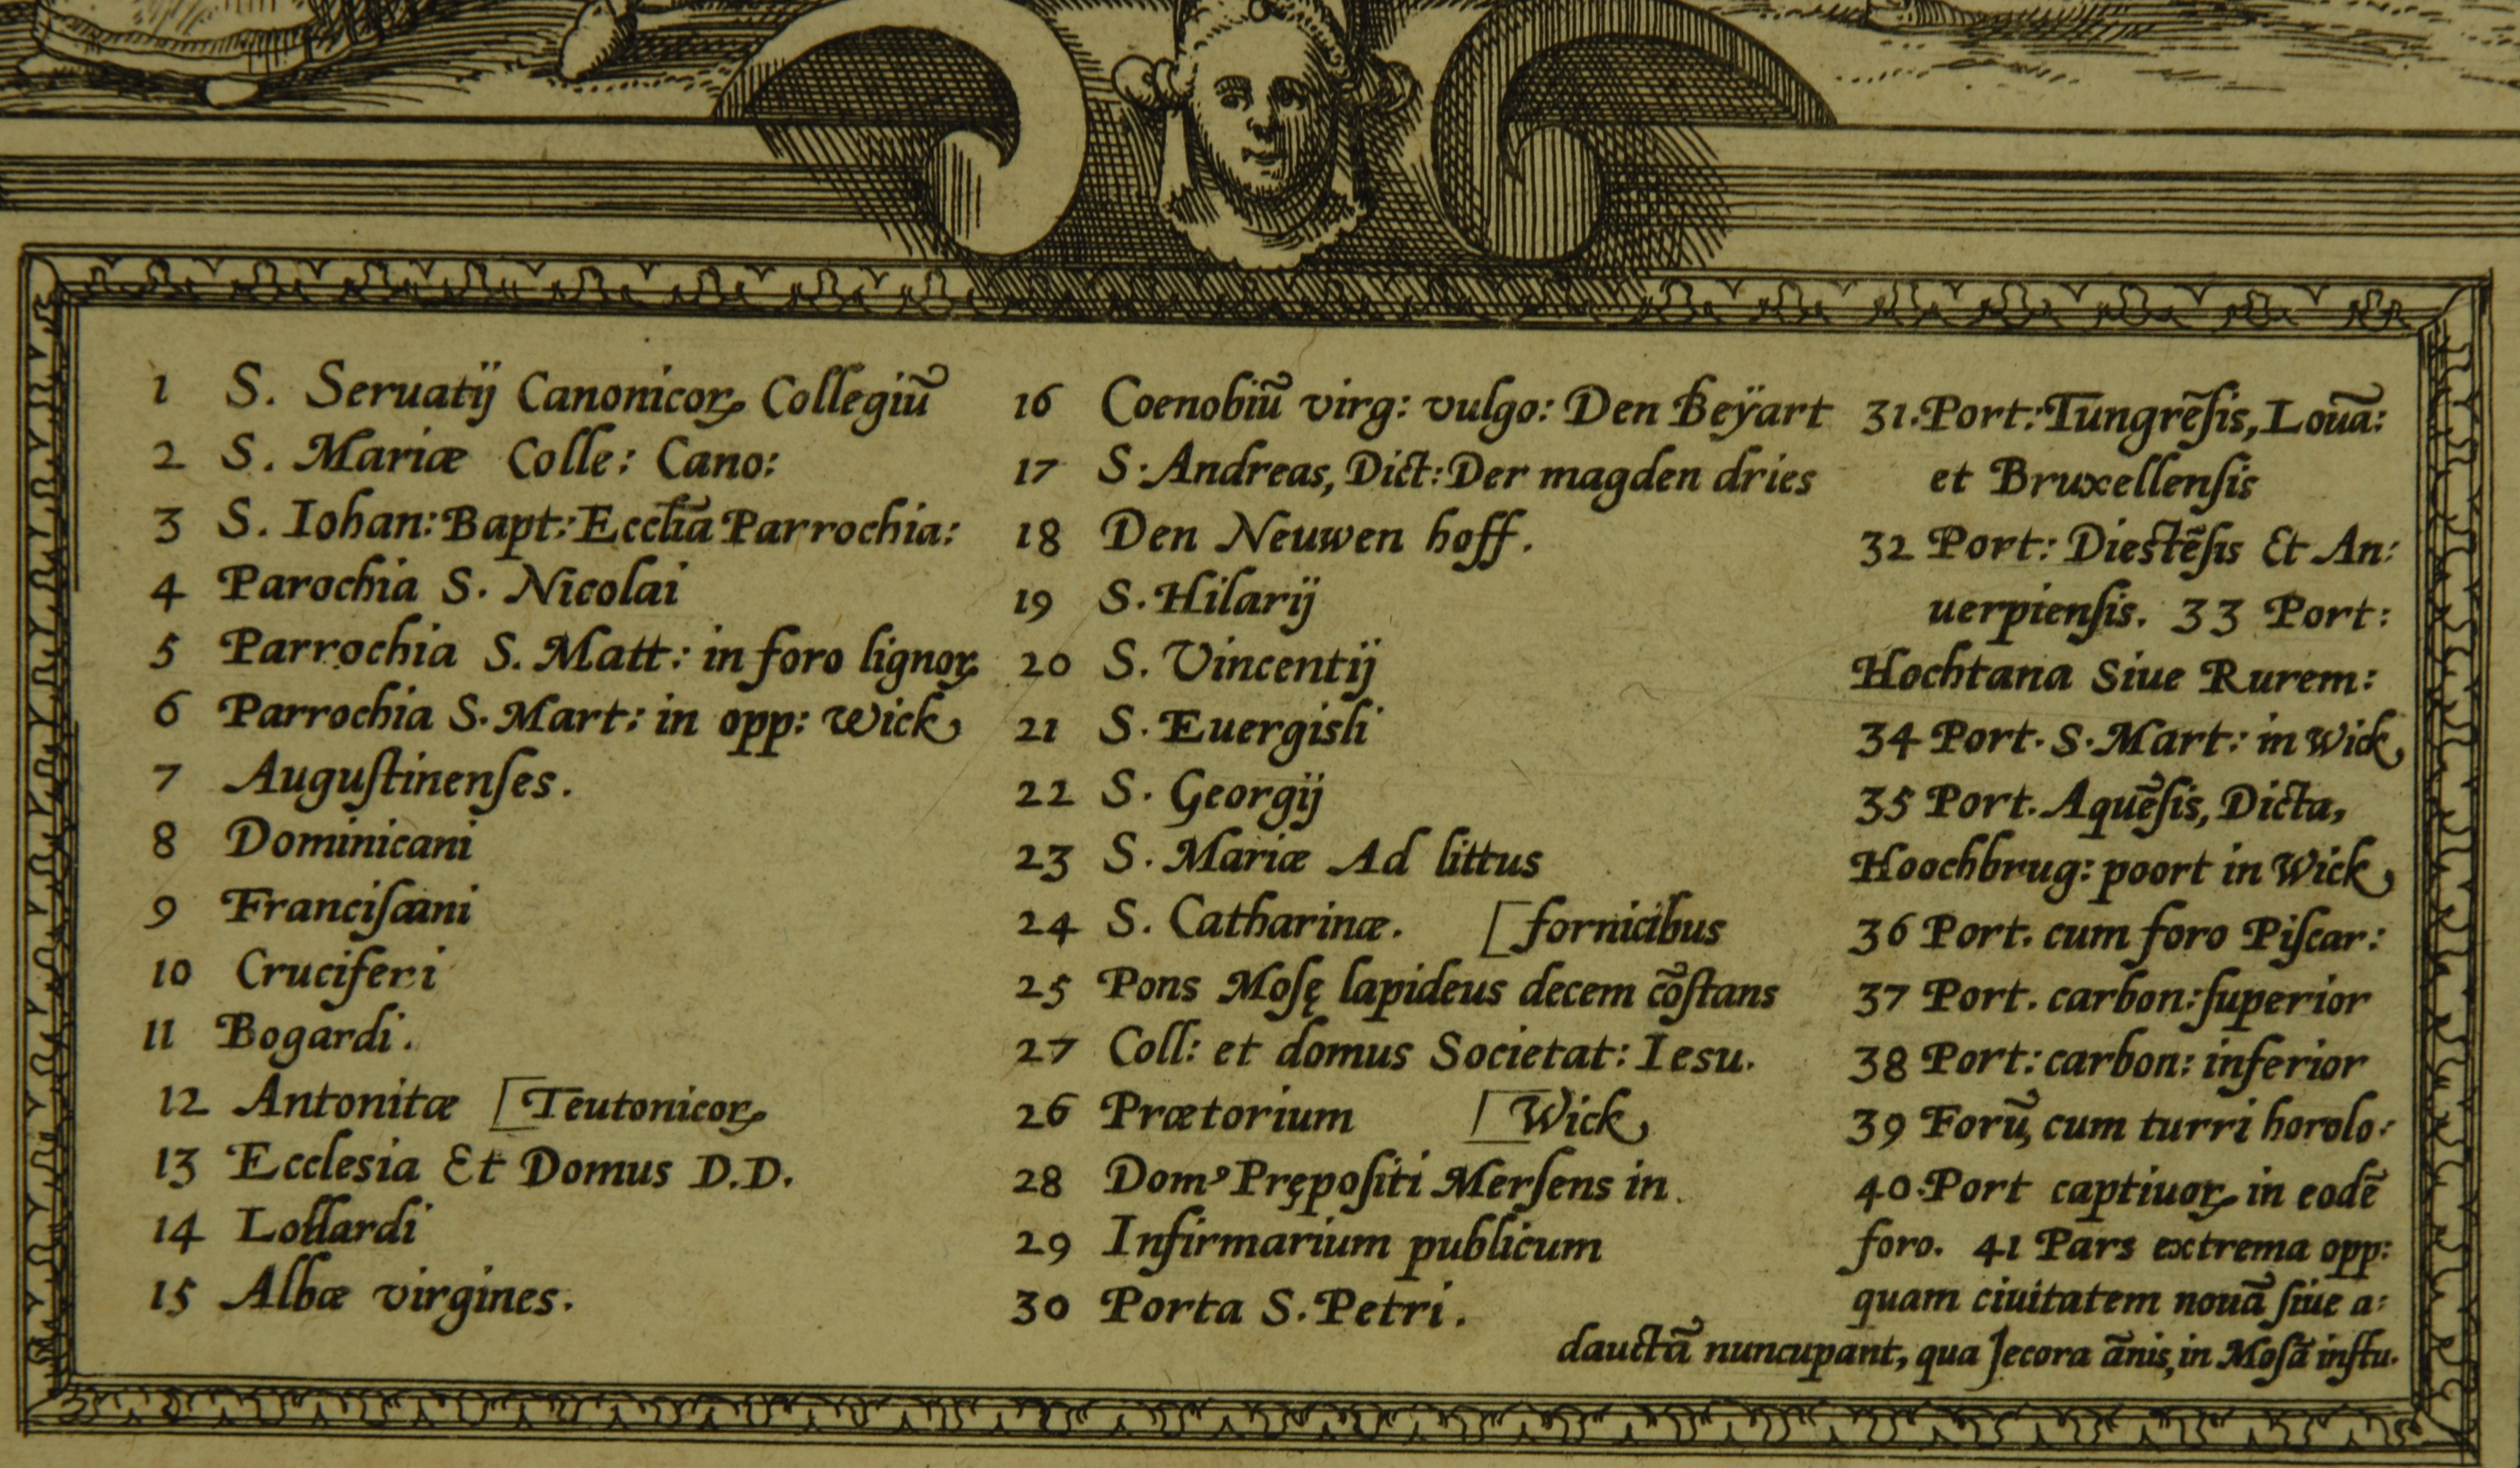 1 S. Seruatij Canonicoꝝ Collegiũ
2 S. Mariæ Colle: Cano:
3 S. Iohan: Bapt: Ecclia͂ Parrochia:
4 Parochia S. Nicolai
5 Parrochia S. Matt: in foro lignoꝝ
6 Parrochia S. Mart: in opp: Wick
7 Auguſtinenſes.
8 Dominicani
9 Franciſcani
10 Cruciferi
11 Bogardi.
12 Antonitæ [Teutonicoꝝ
13 Ecclesia Et Domus D.D.
14 Lollardi
15 Albæ virgines.
16 Coenobiũ virg: vulgo: Den Beÿart
17 S. Andreas, Dict: Der magden dries
18 Den Neuwen hoff.
19 S. Hilarij
20 S. Vincentij
21 S. Euergisli
22 S. Georgij
23 S. Mariæ Ad littus
24 S. Catharinæ. [fornicibus
25 Pons Moſę lapideus decem cõſtans
27 Coll: et domus Societat: Iesu.
26 Prætorium [Wick
28 Domꝰ Prępoſiti Merſens in.
29 Infirmarium publicum
30 Porta S. Petri.
31. Port: Tungrẽſis, Louã:
et Bruxellenſis
32 Port: Diestẽſis Et An:
uerpienſis. 33 Port:
Hochtana Siue Rurem:
34 Port. S. Mart: in Wick
35 Port. Aquẽſis, Dicta,
Hoochbrug: poort in Wick
36 Port. cum foro Piſcar:
37 Port. carbon: ſuperior
38 Port: carbon: inferior
39 Forũ, cum turri horolo:
40. Port captiuoꝝ in eodẽ
foro. 41 Pars extrema opp:
quam ciuitatem nouã ſiue a:
dauctã nuncupant, qua Jecora ãnis, in Moſã influ.